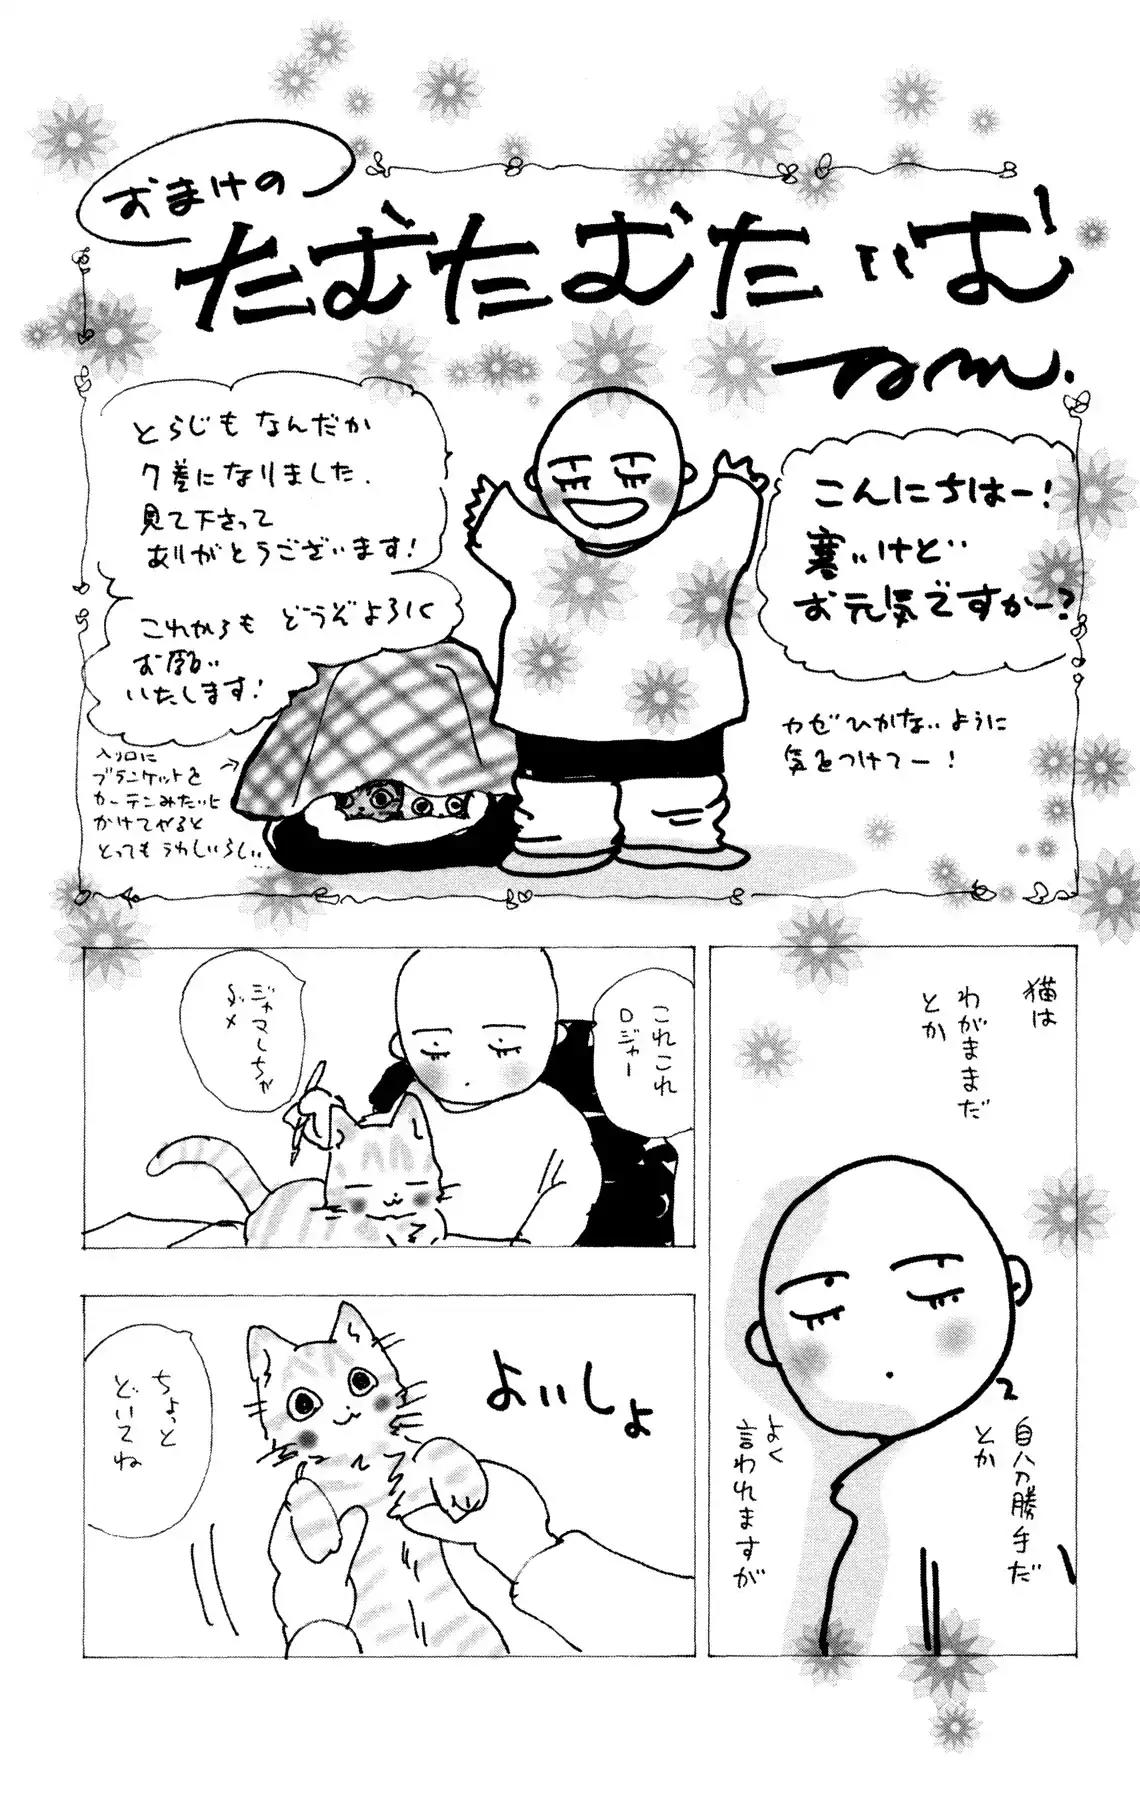 おまけの
たむたむたいむ
こんにちはー!
寒いけど
お元気ですかー?
カゼひかないように
気をつけてー!
とらじもなんだか
7巻になりました。
見て下さって
ありがとうございます!
これからも どうぞよろしく
お願い
いたします!
入り口に
ブランケットを
カーテンみたいに
かけてやると
とってもうれしいらしい…
猫は
わがままだ
とか
自分勝手だ
とか
よく
言われますが
これこれ
ロジャー
ジャマしちゃ
ダメ
よいしょ
ちょっと
どいてね